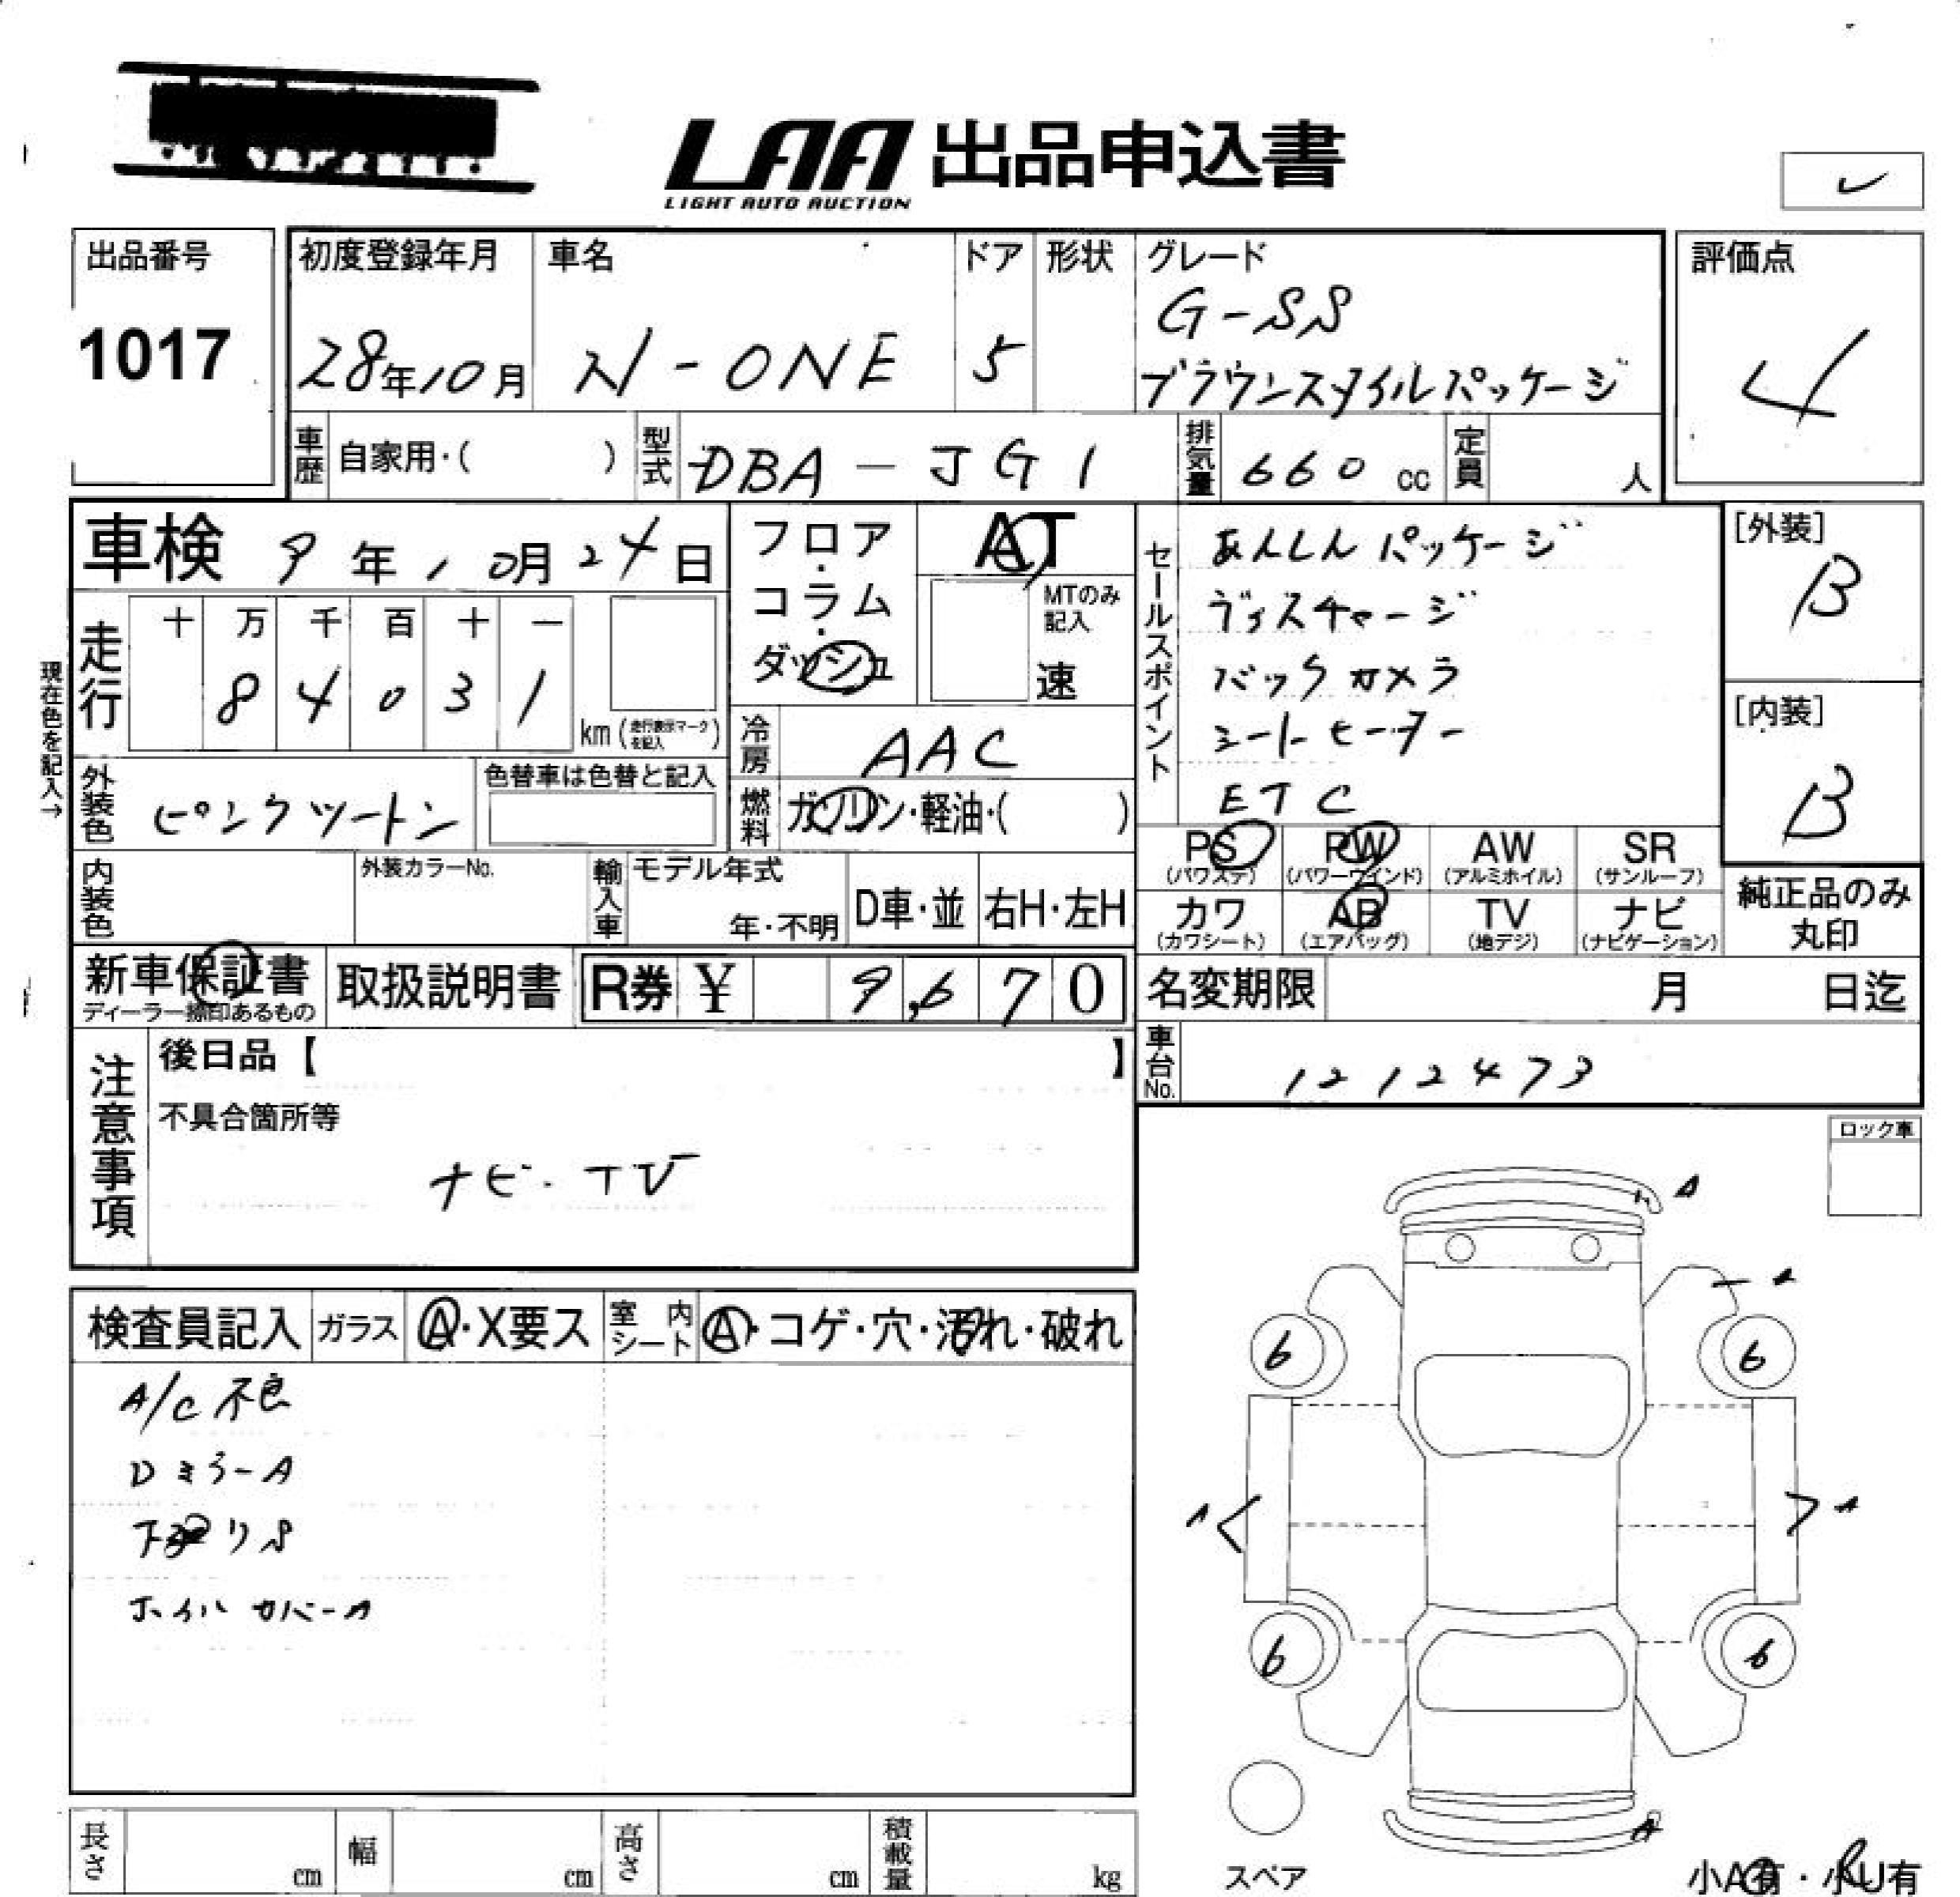 LAA 出品申込書
LIGHT AUTO AUCTION
出品番号
1017
初度登録年月
28年10月
車名
N-ONE
ドア
5
形状
グレード
G-SS
ブラウンスタイルパッケージ
評価点
4
車歴 自家用・( )
型式 DBA-JG1
排気量 660 cc
定員 人
車検 9年10月24日
フロア・コラム・ダッシュ
AT
MTのみ記入
速
セールスポイント
あんしんパッケージ
ディスチャージ
バックカメラ
シートヒーター
ETC
[外装]
B
[内装]
B
現在色を記入→
走行
十 万 千 百 十 一
8 4 0 3 1
km (走行表示マークを記入)
冷房 AAC
外装色 ピンクツートン
色替車は色替と記入
燃料 ガソリン・軽油・( )
PS (パワステ)
PW (パワーウインド)
AW (アルミホイル)
SR (サンルーフ)
カワ (カワシート)
AB (エアバッグ)
TV (地デジ)
ナビ (ナビゲーション)
純正品のみ丸印
内装色
外装カラーNo.
輸入車
モデル年式
年・不明
D車・並
右H・左H
新車保証書
ディーラー捺印あるもの
取扱説明書
R券 ¥ 9,670
名変期限 月 日迄
車台No. 1212473
注意事項
後日品【 】
不具合箇所等
ナビ・TV
ロック車
検査員記入
ガラス A・X要ス
室内シート A・コゲ・穴・汚れ・破れ
A/C不良
Dミラー A
下廻りS
ホイルカバーA
A
A
6
6
A
A
6
6
A
スペア
小A有・小U有
長さ cm
幅 cm
高さ cm
積載量 kg